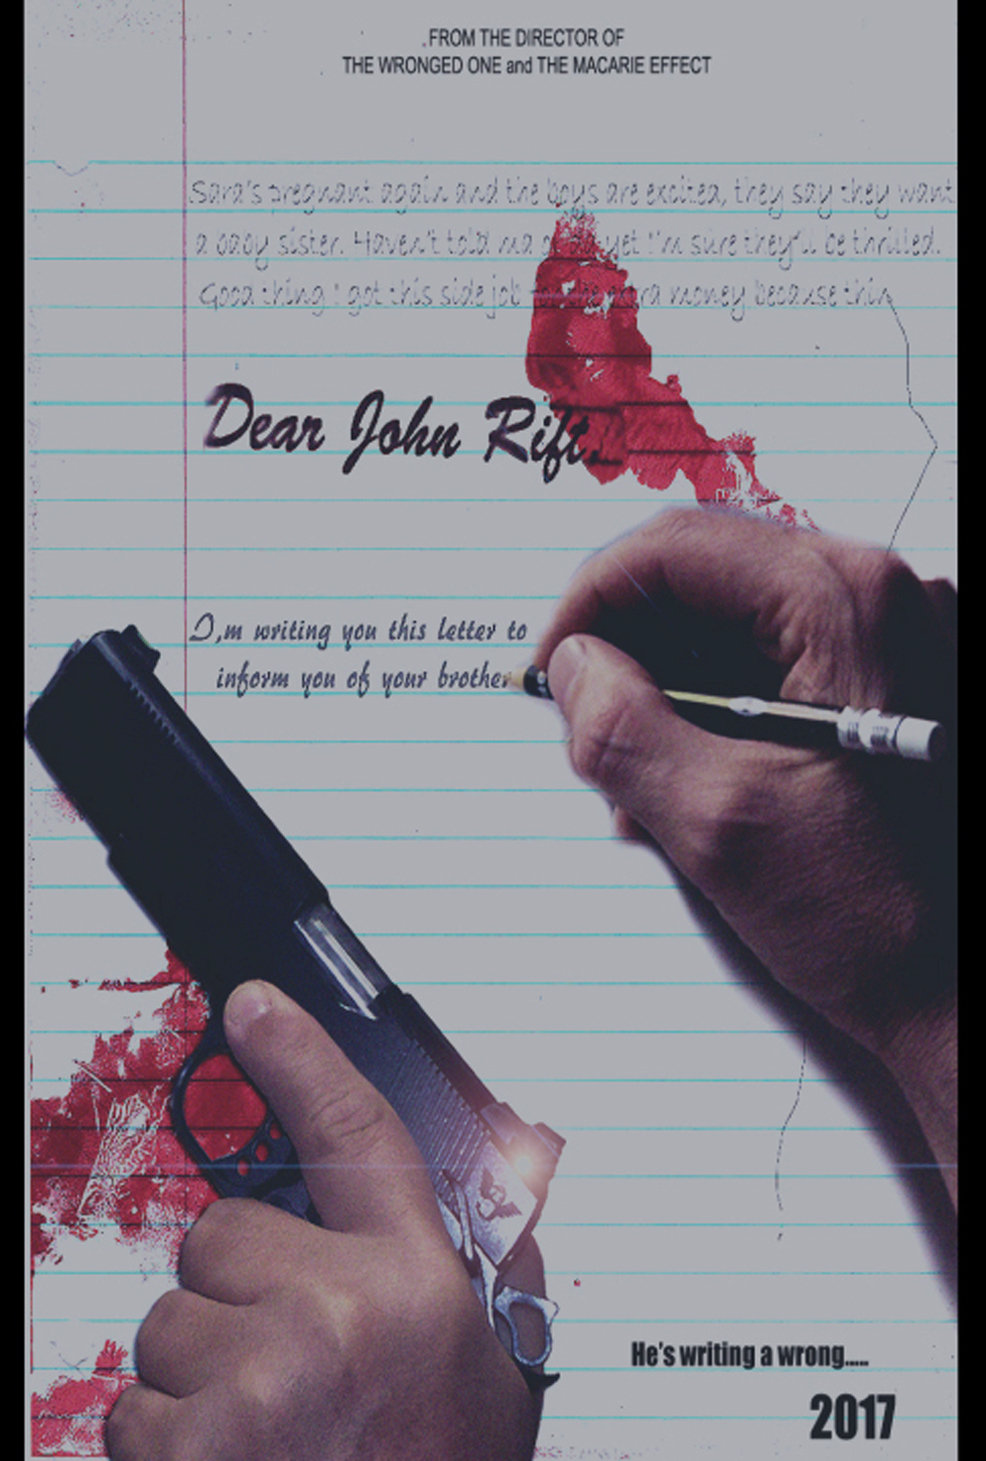 .FROM THE DIRECTOR OF
THE WRONGED ONE and THE MACARIE EFFECT
Sara's pregnant again and the boys are excited, they say they want
a baby sister. Haven't told ma or yet I'm sure they'll be thrilled.
Good thing I got this side job for the extra money because thin
Dear John Rift...
I,m writing you this letter to
inform you of your brother
He's writing a wrong.....
2017